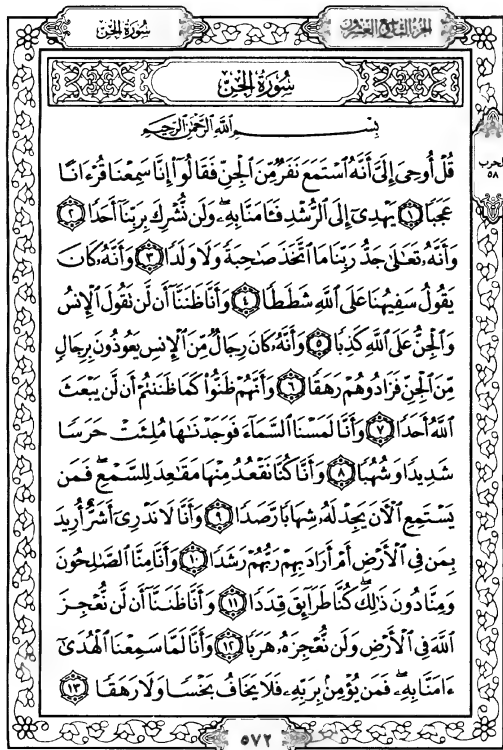 الجزء التاسع والعشرون
سُورَةُ الجِنّ
سُورَةُ الجِنّ
بِسْمِ اللَّهِ الرَّحْمَٰنِ الرَّحِيمِ
قُلْ أُوحِىَ إِلَىَّ أَنَّهُ ٱسْتَمَعَ نَفَرٌ مِّنَ ٱلْجِنِّ فَقَالُوٓا۟ إِنَّا سَمِعْنَا قُرْءَانًا
عَجَبًا ١ يَهْدِىٓ إِلَى ٱلرُّشْدِ فَـَٔامَنَّا بِهِۦ ۖ وَلَن نُّشْرِكَ بِرَبِّنَآ أَحَدًا ٢
وَأَنَّهُۥ تَعَٰلَىٰ جَدُّ رَبِّنَا مَا ٱتَّخَذَ صَٰحِبَةً وَلَا وَلَدًا ٣ وَأَنَّهُۥ كَانَ
يَقُولُ سَفِيهُنَا عَلَى ٱللَّهِ شَطَطًا ٤ وَأَنَّا ظَنَنَّآ أَن لَّن تَقُولَ ٱلْإِنسُ
وَٱلْجِنُّ عَلَى ٱللَّهِ كَذِبًا ٥ وَأَنَّهُۥ كَانَ رِجَالٌ مِّنَ ٱلْإِنسِ يَعُوذُونَ بِرِجَالٍ
مِّنَ ٱلْجِنِّ فَزَادُوهُمْ رَهَقًا ٦ وَأَنَّهُمْ ظَنُّوا۟ كَمَا ظَنَنتُمْ أَن لَّن يَبْعَثَ
ٱللَّهُ أَحَدًا ٧ وَأَنَّا لَمَسْنَا ٱلسَّمَآءَ فَوَجَدْنَٰهَا مُلِئَتْ حَرَسًا
شَدِيدًا وَشُهُبًا ٨ وَأَنَّا كُنَّا نَقْعُدُ مِنْهَا مَقَٰعِدَ لِلسَّمْعِ ۖ فَمَن
يَسْتَمِعِ ٱلْـَٔانَ يَجِدْ لَهُۥ شِهَابًا رَّصَدًا ٩ وَأَنَّا لَا نَدْرِىٓ أَشَرٌّ أُرِيدَ
بِمَن فِى ٱلْأَرْضِ أَمْ أَرَادَ بِهِمْ رَبُّهُمْ رَشَدًا ١٠ وَأَنَّا مِنَّا ٱلصَّٰلِحُونَ
وَمِنَّا دُونَ ذَٰلِكَ ۖ كُنَّا طَرَآئِقَ قِدَدًا ١١ وَأَنَّا ظَنَنَّآ أَن لَّن نُّعْجِزَ
ٱللَّهَ فِى ٱلْأَرْضِ وَلَن نُّعْجِزَهُۥ هَرَبًا ١٢ وَأَنَّا لَمَّا سَمِعْنَا ٱلْهُدَىٰٓ
ءَامَنَّا بِهِۦ ۖ فَمَن يُؤْمِنۢ بِرَبِّهِۦ فَلَا يَخَافُ بَخْسًا وَلَا رَهَقًا ١٣
الحزب
٥٨
٥٧٢